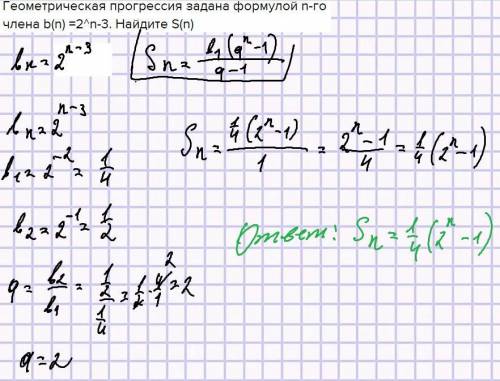 Геометрическая прогрессия задана формулой n-го
члена b(n) =2^n-3. Найдите S(n)
bn = 2^{n-3}
Sn = b1(q^n - 1) / (q - 1)
bn = 2^{n-3}
b1 = 2^{-2} = 1/4
b2 = 2^{-1} = 1/2
q = b2/b1 = (1/2)/(1/4) = 1/2 · 4/1 = 2
2
q = 2
Sn = 1/4(2^n - 1) / 1 = (2^n - 1)/4 = 1/4(2^n - 1)
Ответ: Sn = 1/4(2^n - 1)